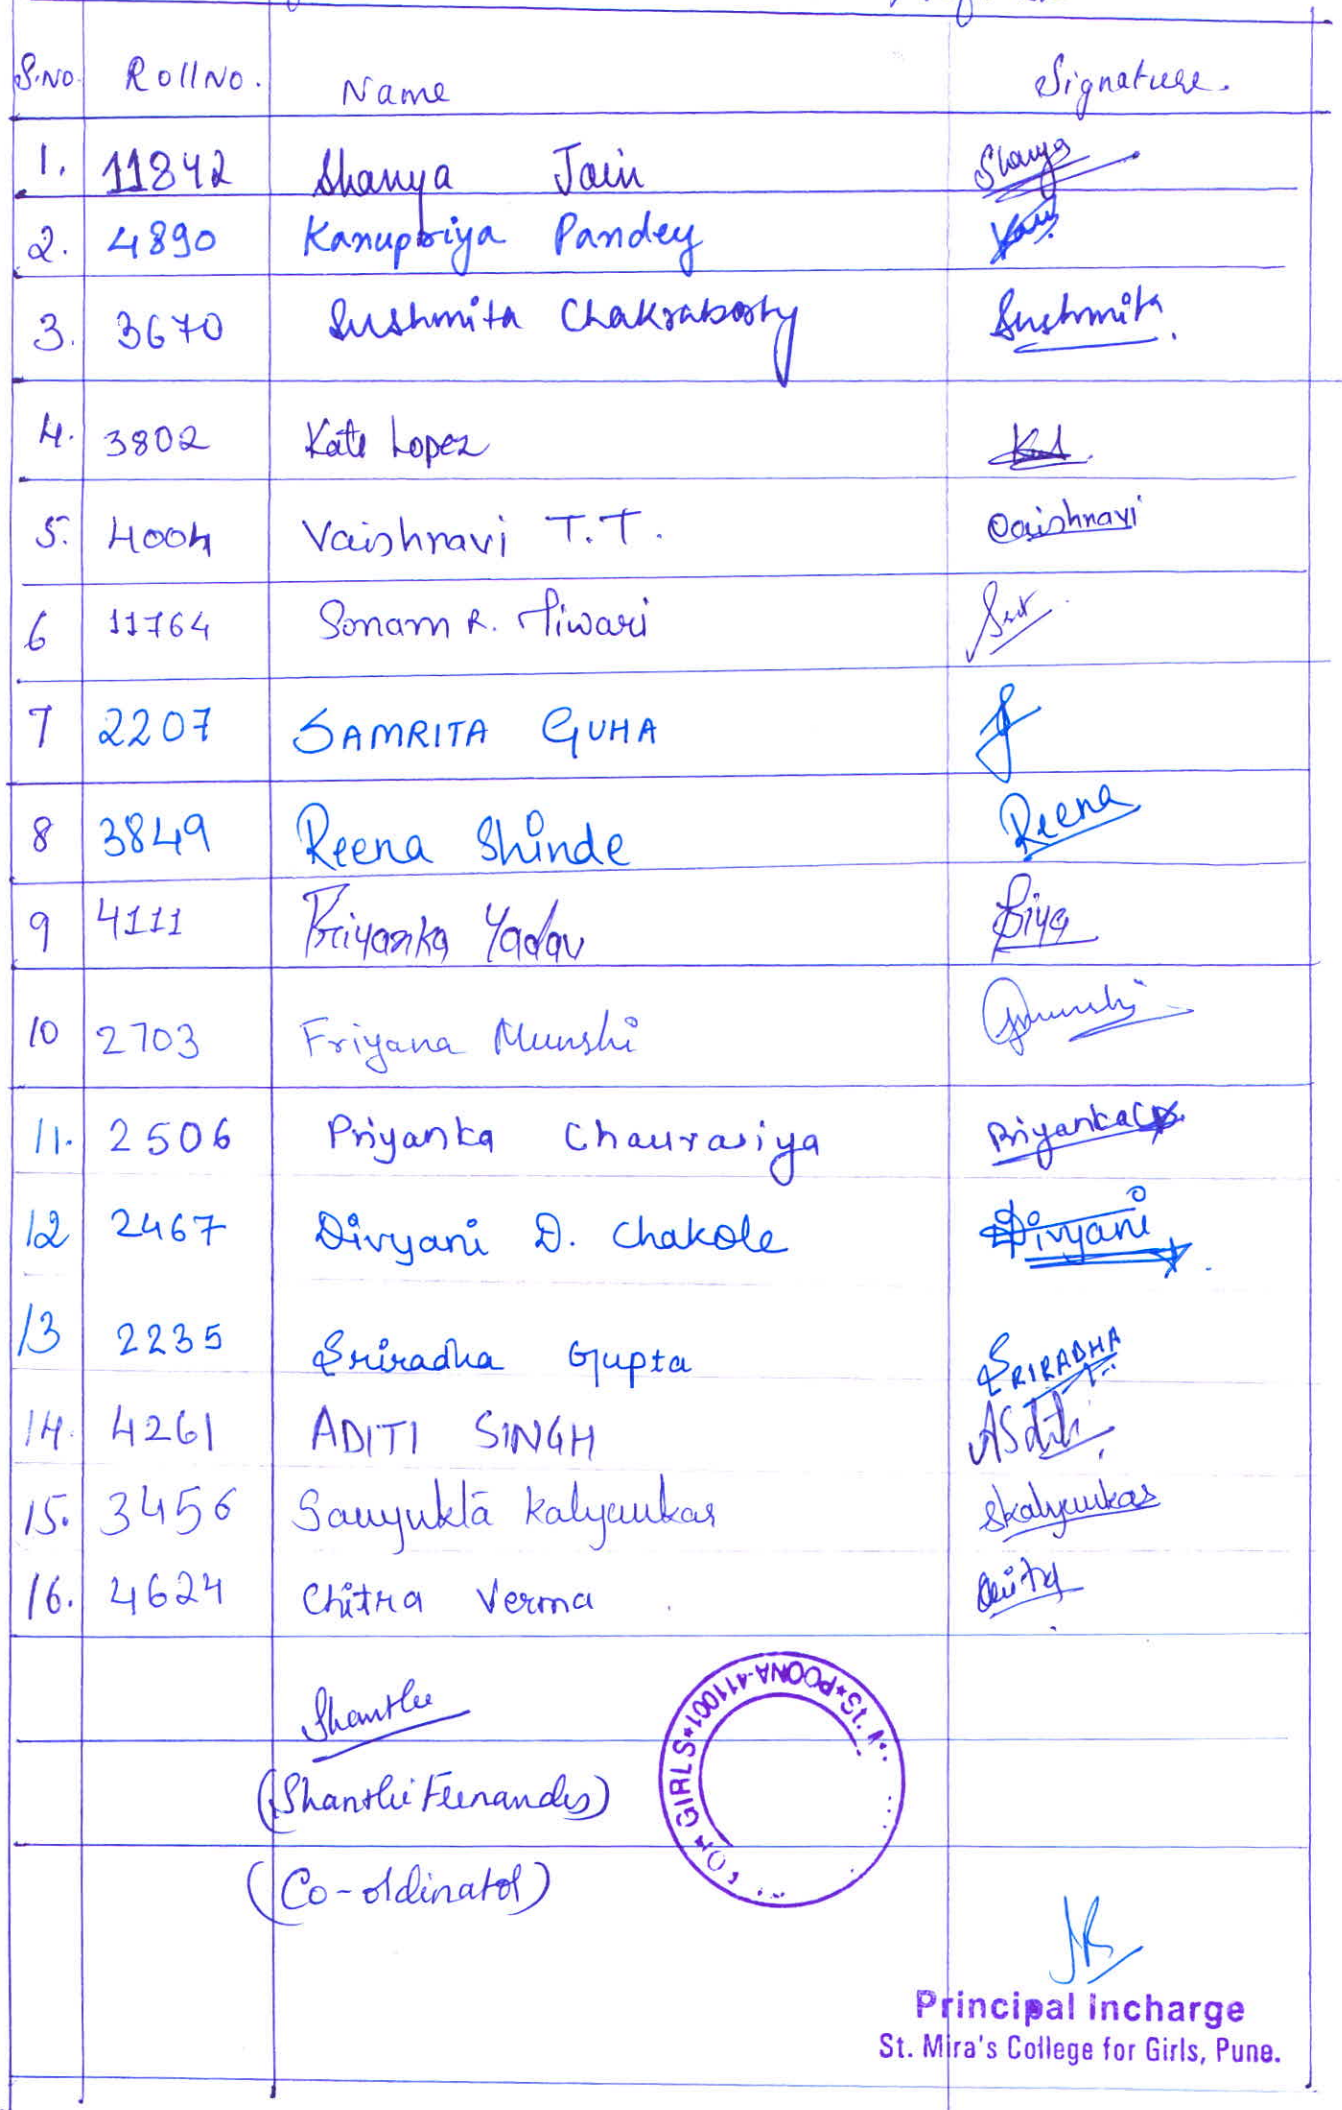 S.No. Roll No. Name Signature.
1. 11842 Shanya Jain Shanya
2. 4890 Kanupriya Pandey
3. 3670 Sushmita Chakraborty Sushmita
4. 3802 Kate Lopez
5. 4004 Vaishnavi T.T. Vaishnavi
6 11764 Sonam R. Tiwari
7 2207 SAMRITA GUHA
8 3849 Reena Shinde Reena
9 4111 Priyanka Yadav
10 2703 Friyana Munshi
11. 2506 Priyanka Chaurasiya Priyanka
12 2467 Divyani D. Chakole Divyani
13 2235 Sriradha Gupta SRIRADHA
14. 4261 ADITI SINGH
15. 3456 Sanyukta Kalyankar Skalyankar
16. 4624 Chitra Verma
GIRLS*POONA-411001*St.
(Shanthi Fernandes)
(Co-ordinator)
Principal Incharge
St. Mira's College for Girls, Pune.